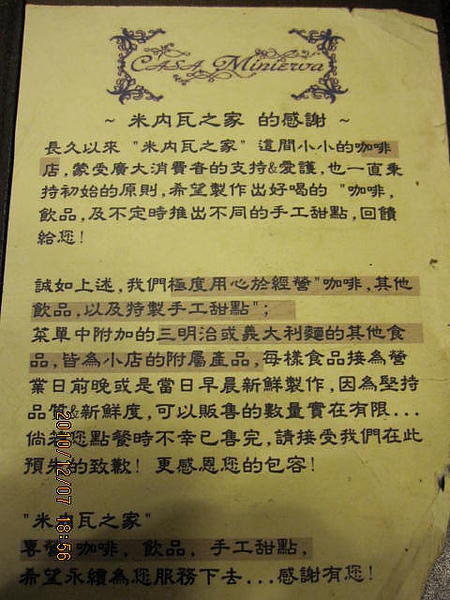 CASA Minerva
~ 米內瓦之家 的感謝 ~
長久以來 "米內瓦之家" 這間小小的咖啡
店,蒙受廣大消費者的支持&愛護,也一直秉
持初始的原則,希望製作出好喝的 "咖啡,
飲品,及不定時推出不同的手工甜點,回饋
給您!
誠如上述,我們極度用心於經營"咖啡,其他
飲品,以及特製手工甜點";
菜單中附加的三明治或義大利麵的其他食
品,皆為小店的附屬產品,每樣食品接為營
業日前晚或是當日早晨新鮮製作,因為堅持
品質&新鮮度,可以販售的數量實在有限...
倘若您點餐時不幸已售完,請接受我們在此
預先的致歉! 更感恩您的包容!
"米內瓦之家"
專營 咖啡, 飲品, 手工甜點,
希望永續為您服務下去...感謝有您!
2010/12/07 18:56